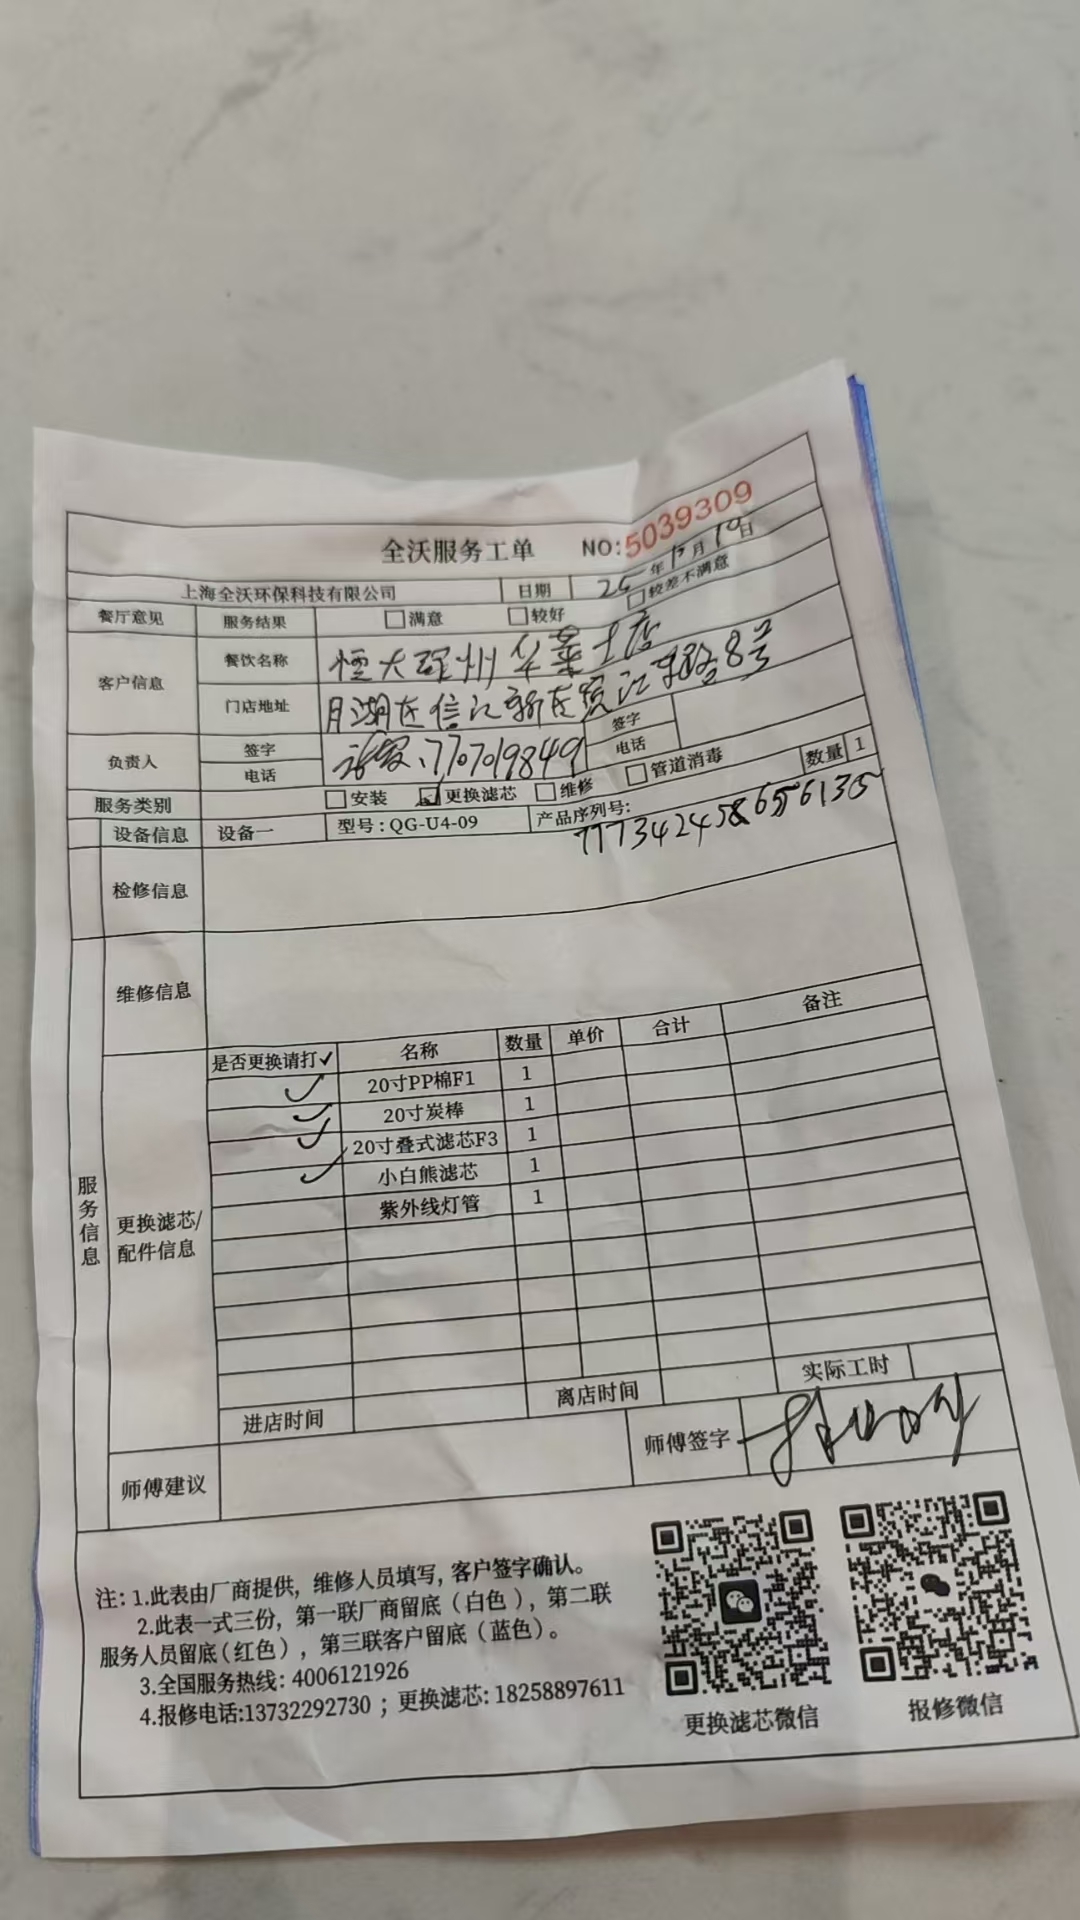 全沃服务工单 NO:5039309
上海全沃环保科技有限公司 日期 25年12月10日
餐厅意见 服务结果 □满意 □较好 □较差不满意
客户信息 餐饮名称 恒大 州华莱士店
门店地址 月湖 信江新 江 路8号
负责人 签字 签字
电话 电话
服务类别 □安装 ☑更换滤芯 □维修 □管道消毒 数量 1
设备信息 设备一 型号:QG-U4-09 产品序列号:
检修信息
维修信息
服务信息
更换滤芯/配件信息
是否更换请打✓ 名称 数量 单价 合计 备注
✓ 20寸PP棉F1 1
✓ 20寸炭棒 1
✓ 20寸叠式滤芯F3 1
✓ 小白熊滤芯 1
紫外线灯管 1
进店时间 离店时间 实际工时
师傅建议 师傅签字
注: 1.此表由厂商提供, 维修人员填写, 客户签字确认。
2.此表一式三份, 第一联厂商留底 (白色), 第二联
服务人员留底(红色), 第三联客户留底 (蓝色)。
3.全国服务热线: 4006121926
4.报修电话:13732292730 ; 更换滤芯: 18258897611
更换滤芯微信 报修微信